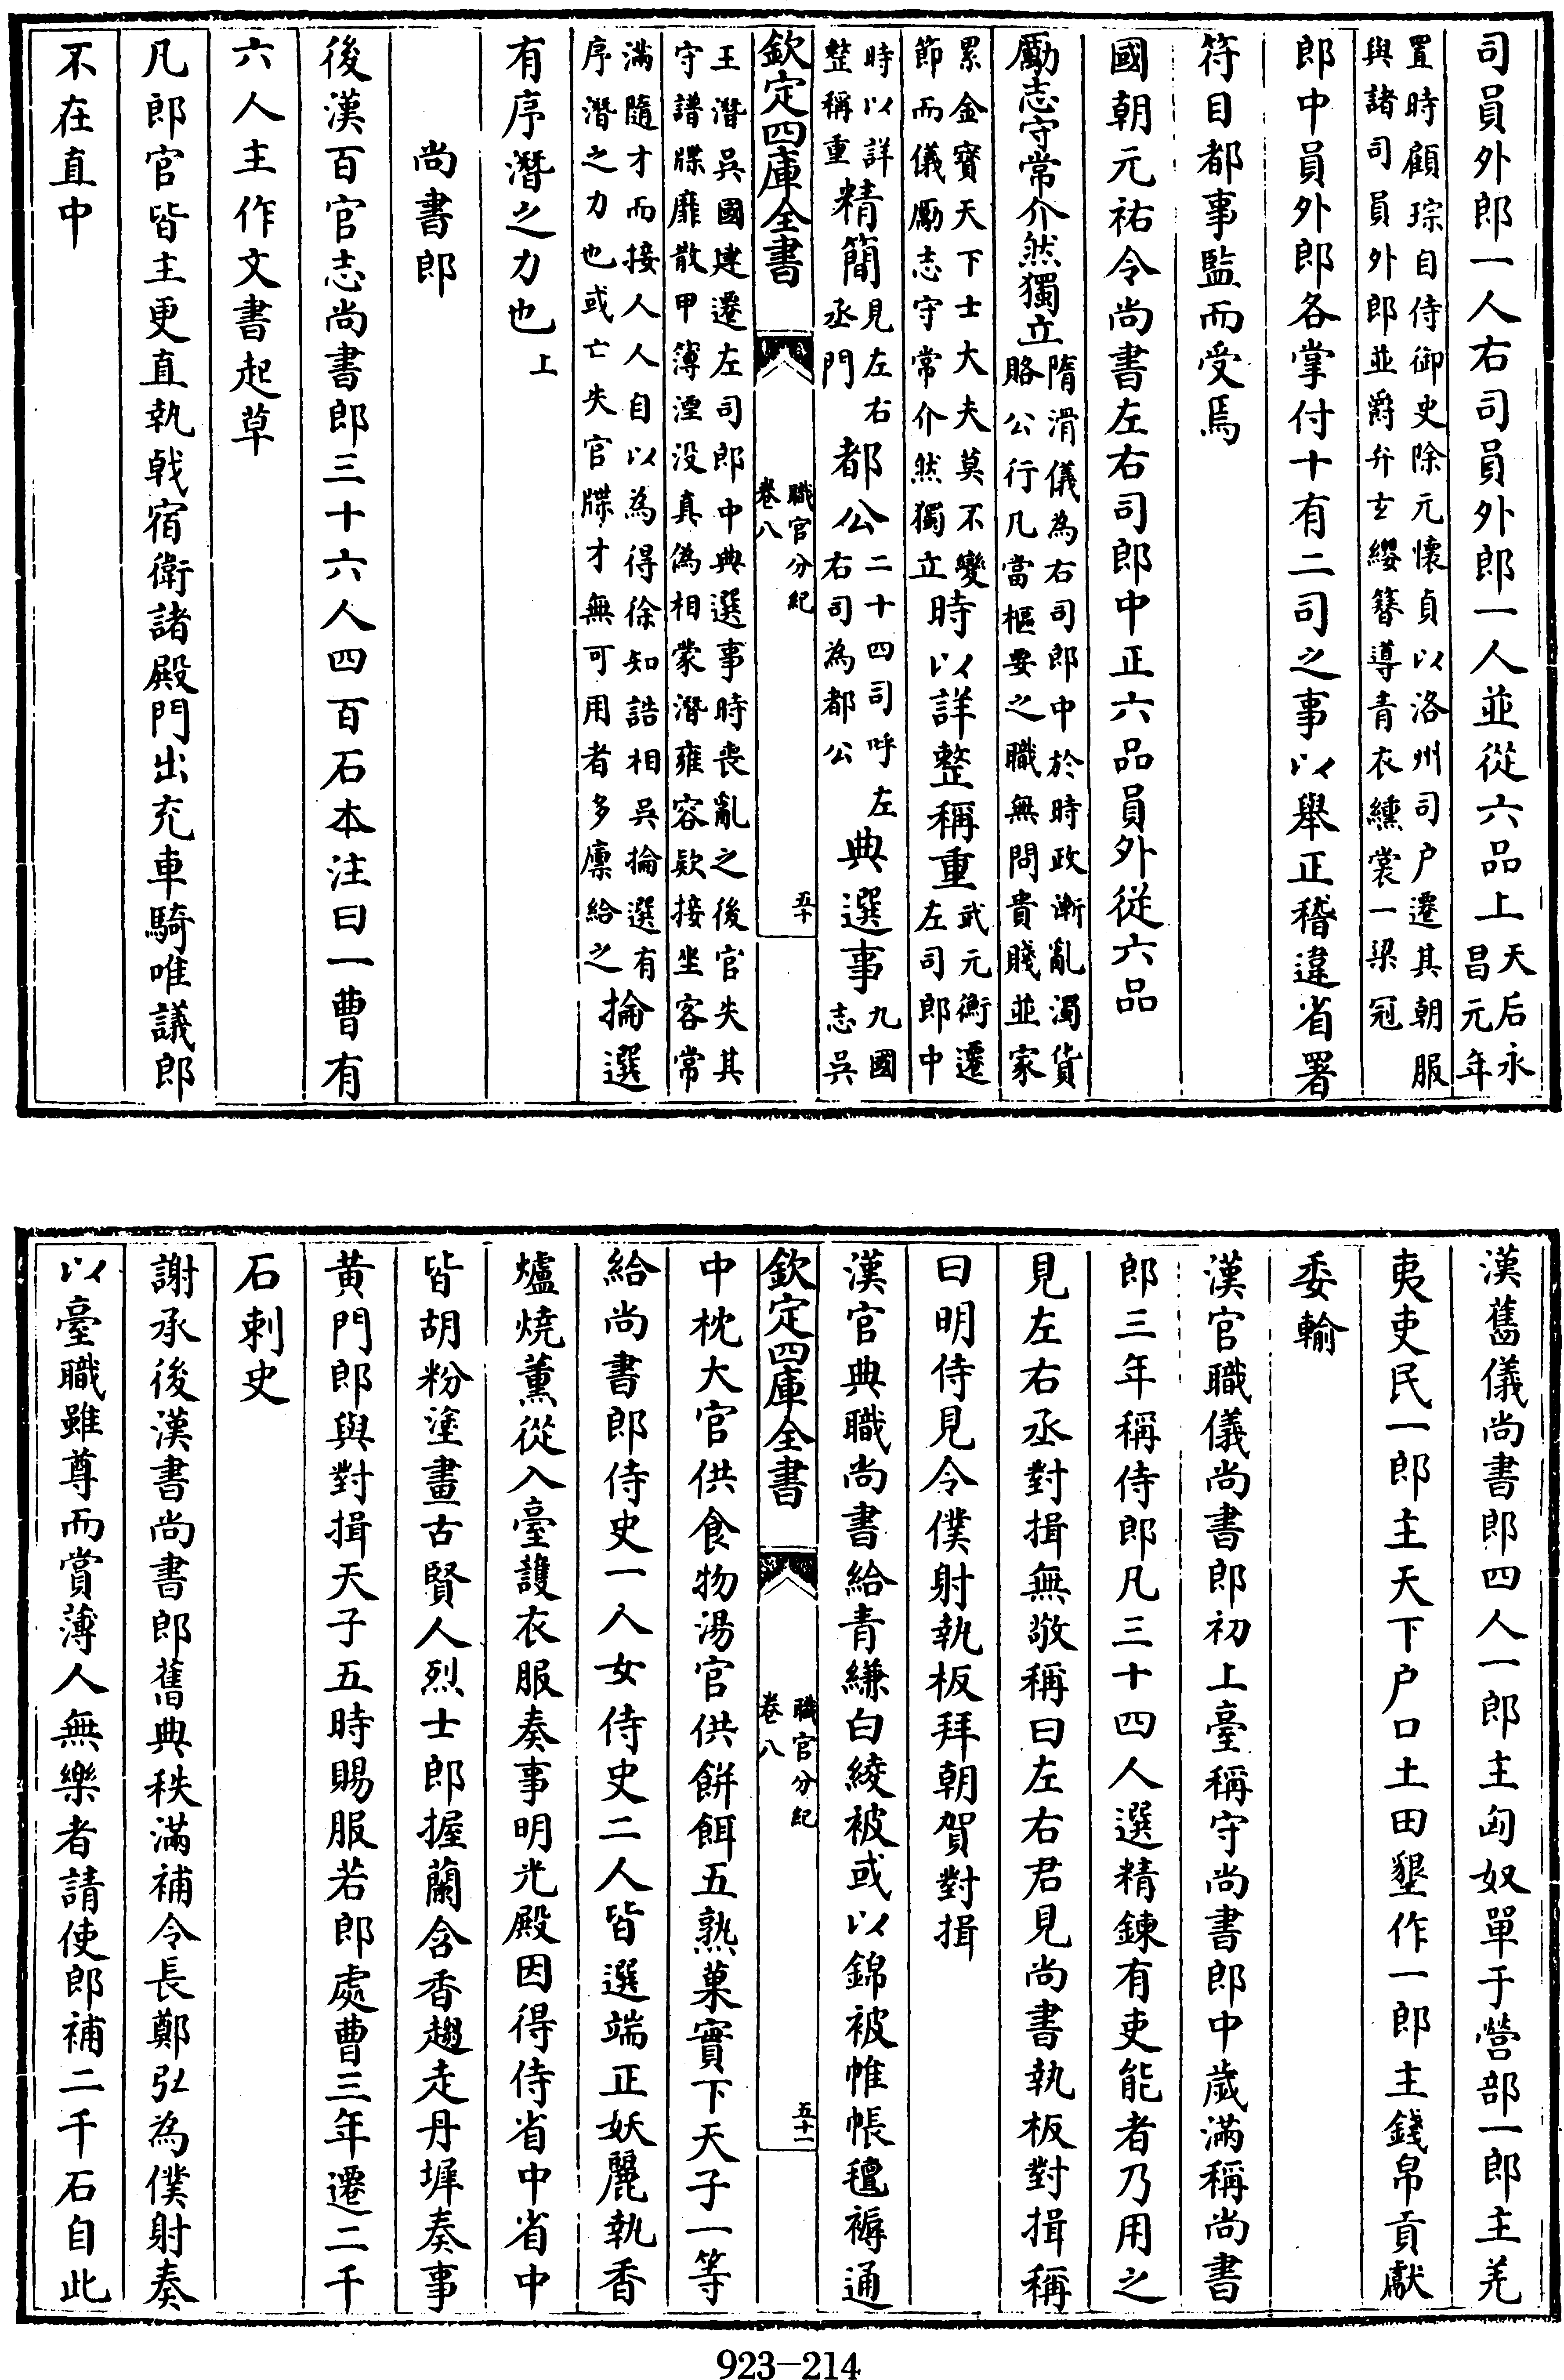 司員外郎一人右司員外郎一人並從六品上天后永昌元年
置時顧琮自侍御史除元懷貞以洛州司户遷其朝服
與諸司員外郎並爵弁玄纓簪導青衣纁裳一梁冠
郎中員外郎各掌付十有二司之事以舉正稽違省署
符目都事監而受焉
國朝元祐令尚書左右司郎中正六品員外從六品
勵志守常介然獨立隋滑儀為右司郎中於時政漸亂濁貨賂公行凡當樞要之職無問貴賤並家
累金寳天下士大夫莫不變節而儀勵志守常介然獨立時以詳整稱重武元衡遷左司郎中
時以詳整稱重精簡見左右丞門都公二十四司呼左右司為都公典選事九國志吳
欽定四庫全書 職官分紀 卷八 五十
王潛吳國建遷左司郎中典選事時丧亂之後官失其
守譜牒靡散甲簿湮没真偽相蒙潛雍容欵接坐客常
滿隨才而接人人自以為得徐知誥相吳掄選有序潛之力也或亡失官牒才無可用者多廩給之掄選
有序潛之力也上
尚書郎
後漢百官志尚書郎三十六人四百石本注曰一曹有
六人主作文書起草
凡郎官皆主更直執戟宿衛諸殿門出充車騎唯議郎
不在直中
漢舊儀尚書郎四人一郎主匈奴單于營部一郎主羌
夷吏民一郎主天下户口土田墾作一郎主錢帛貢獻
委輸
漢官職儀尚書郎初上臺稱守尚書郎中歲滿稱尚書
郎三年稱侍郎凡三十四人選精鍊有吏能者乃用之
見左右丞對揖無敬稱曰左右君見尚書執板對揖稱
曰明侍見令僕射執板拜朝賀對揖
漢官典職尚書給青縑白綾被或以錦被帷帳氊褥通
欽定四庫全書 職官分紀 卷八 五十一
中枕大官供食物湯官供餅餌五熟菓實下天子一等
給尚書郎侍史一人女侍史二人皆選端正妖麗執香
爐燒薰從入臺護衣服奏事明光殿因得侍省中省中
皆胡粉塗畫古賢人烈士郎握蘭含香趨走丹墀奏事
黄門郎與對揖天子五時賜服若郎處曹三年遷二千
石刺史
謝承後漢書尚書郎舊典秩滿補令長鄭弘為僕射奏
以臺職雖尊而賞薄人無樂者請使郎補二千石自此
923-214